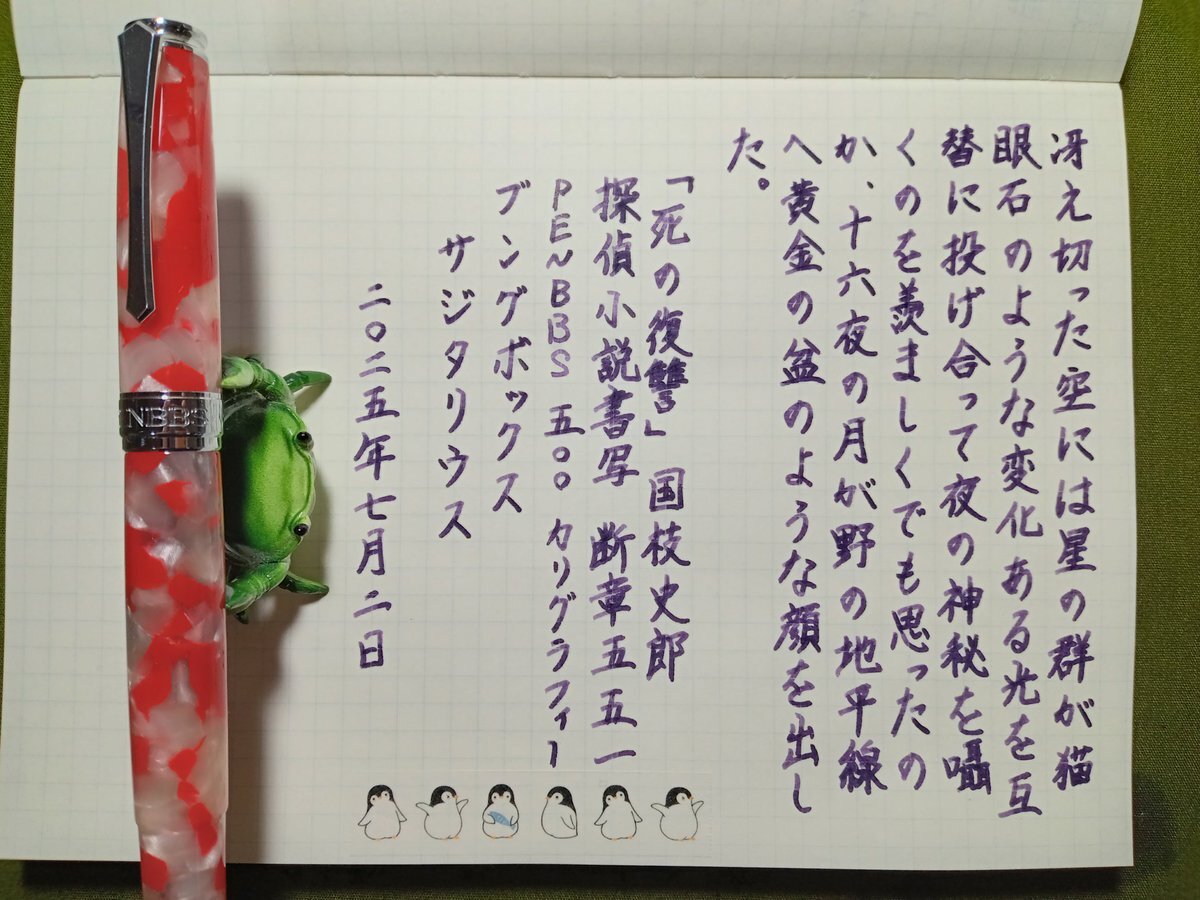 冴え切った空には星の群が猫
眼石のような変化ある光を互
替に投げ合って夜の神秘を囁
くのを羨ましくでも思ったの
か、十六夜の月が野の地平線
へ黄金の盆のような顔を出し
た。
「死の復讐」国枝史郎
探偵小説書写 断章五五一
PENBBS 五〇〇 カリグラフィー
ブングボックス
サジタリウス
二〇二五年七月二日
NBBS